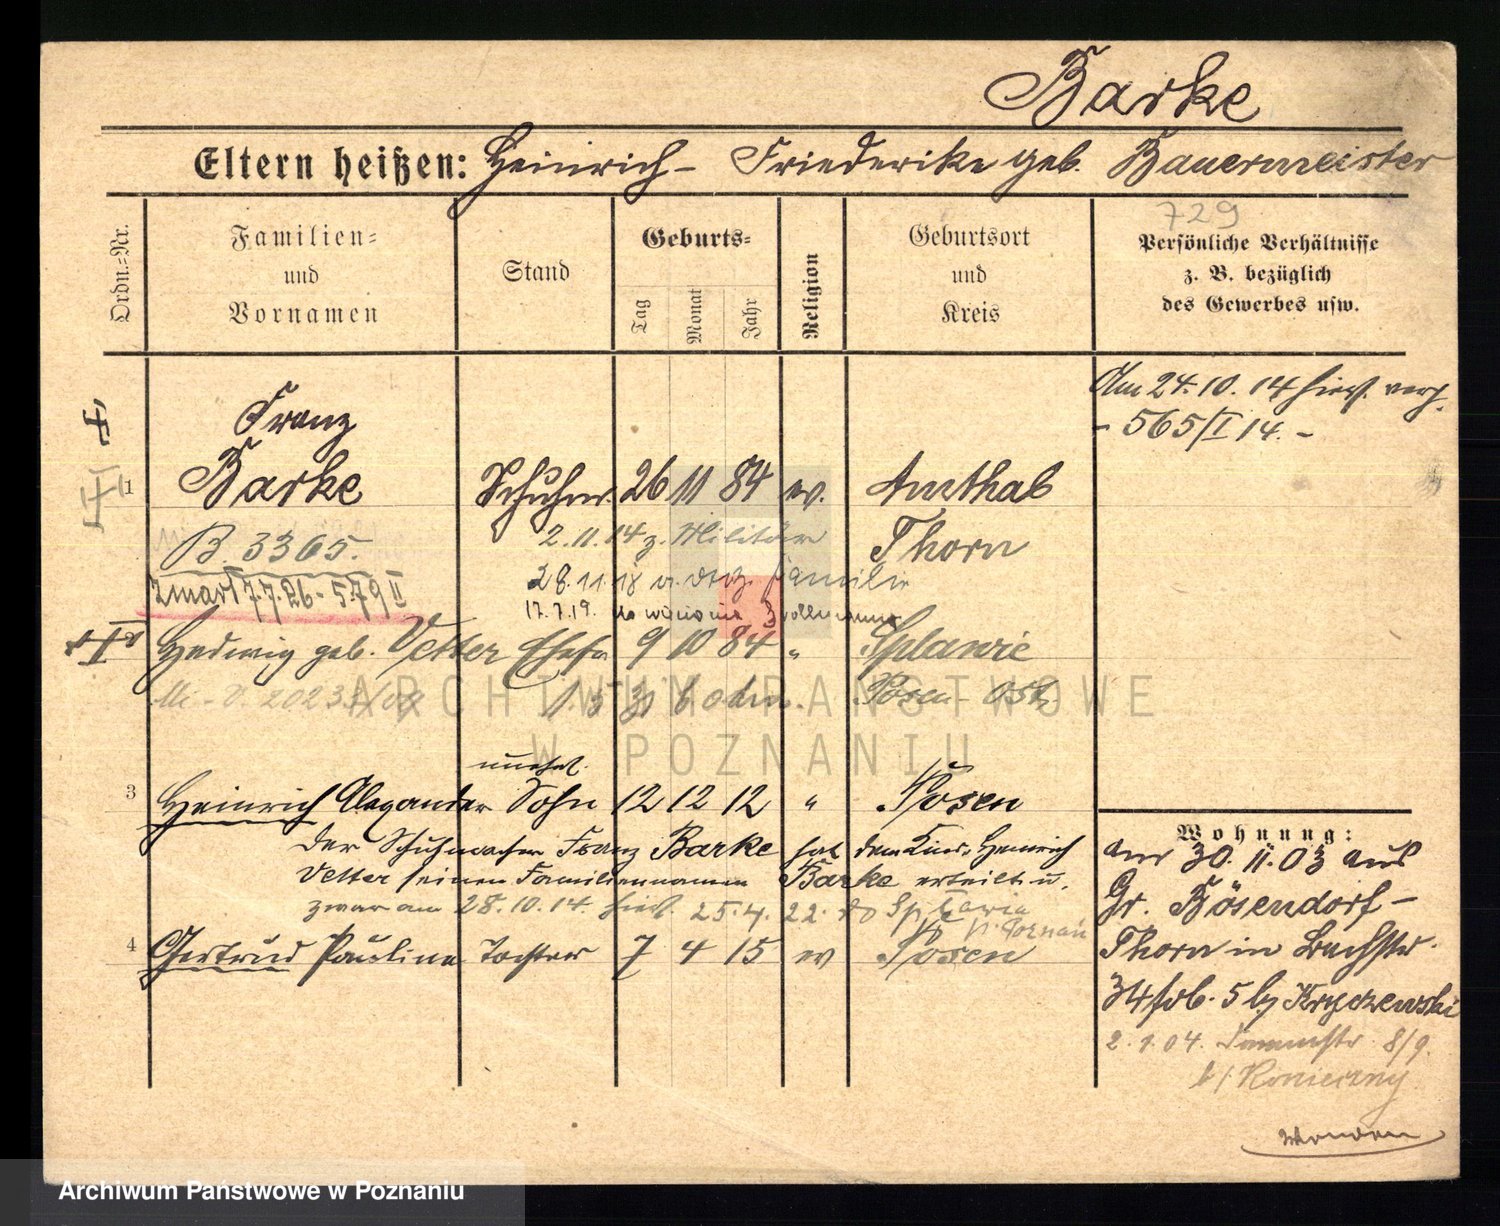 Barke
Eltern heißen: Heinrich – Friederike geb. Bauermeister
729
Ordn.-Nr.
Familien-
und
Vornamen
Stand
Geburts-
Tag
Monat
Jahr
Religion
Geburtsort
und
Kreis
Persönliche Verhältnisse
z. B. bezüglich
des Gewerbes usw.
Am 24.10.14 hies. verh.
- 565/I 14. -
Franz
1 Barke Schuhm. 26 11 84 ev. Amthal
Thorn
B. 3365.
2.11.14 z. Militär
zmarł 7.7.26 - 579 II
28.11.18 Familie
17.7.19.
Hedwig geb. Vetter Ehefr 9 10 84 " Splawie
Posen Ost
unehel.
3 Heinrich Alexander Sohn 12 12 12 " Posen
Der Schuhmacher Franz Barke hat dem Kinde Heinrich
Vetter seinen Familiennamen Barke erteilt u.
zwar am 28.10.14. hies. 25.4.22. do Spławia
p. Poznań
4 Gertrud Pauline Tochter 7 4 15 ev Posen
Wohnung:
am 30.11.03 aus
Gr. Bösendorf –
Thorn in Bachstr.
34 5 b/
2.1.04. 8/9.
b/ Konieczny
ARCHIWUM PAŃSTWOWE
W POZNANIU
Archiwum Państwowe w Poznaniu